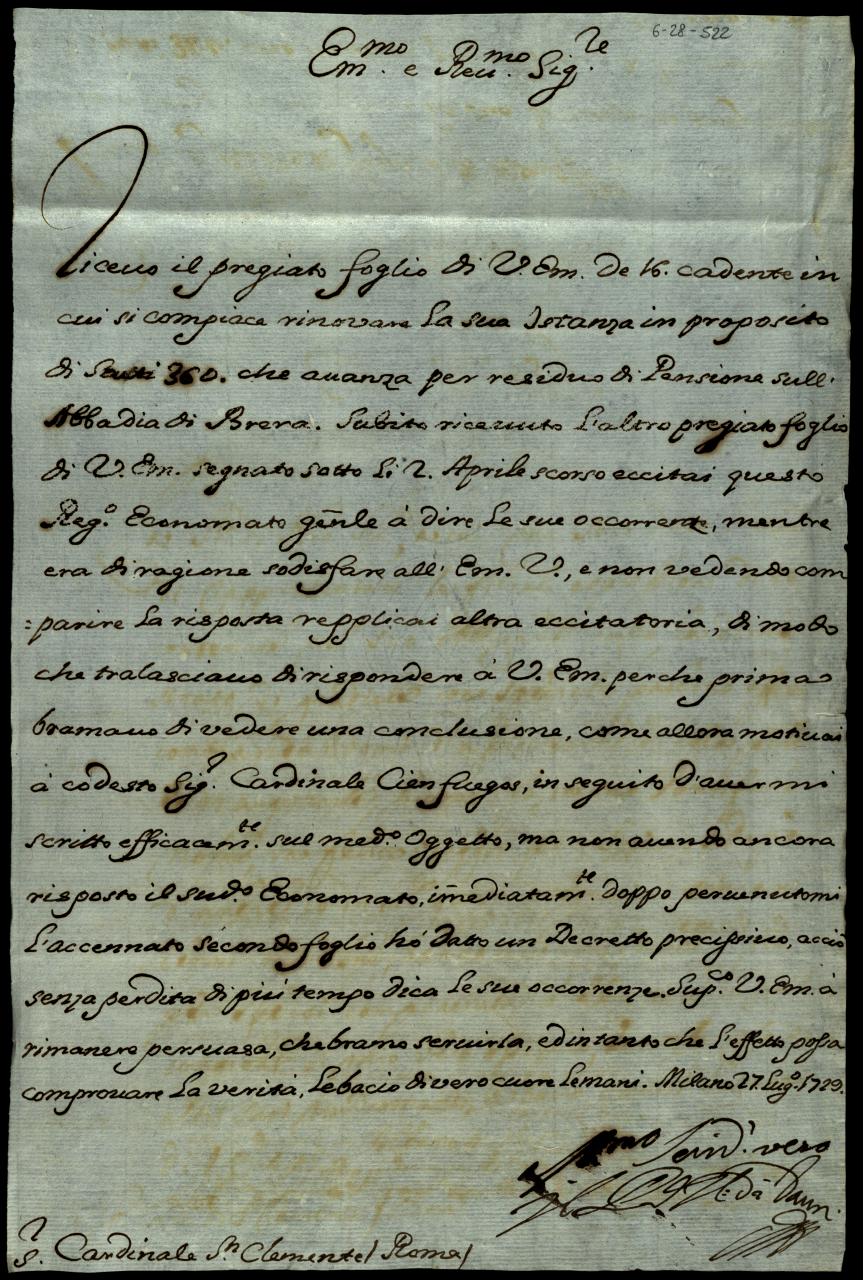 6-28-522
Em.mo e Reu.mo Sig.re
Riceuo il pregiato foglio di V. Em. de 16. cadente in
cui si compiace rinovare la sua Istanza in proposito
di Scudi 360. che auanza per residuo di Pensione sull'
Abbadia di Brera. Subito riceuuto l'altro pregiato foglio
di V. Em. segnato sotto li 2. Aprile scorso eccitai questo
Reg.o Economato gen̄le à dire le sue occorrenze, mentre
era di ragione sodisfare all' Em. V., e non vedendo com
=parire la risposta repplicai altra eccitatoria, di modo
che tralasciauo di rispondere à V. Em. perche prima
bramauo di vedere una conclusione, come allora motiuai
à codesto Sig.r Cardinale Cienfuegos, in seguito d'auermi
scritto efficacem.te sul med.o Oggetto, ma non auendo ancora
risposto il sud.o Economato, im̄ediatam.te doppo peruenutomi
l'accennato secondo foglio hó datto un Decretto precissiuo, acciò
senza perdita di piú tempo dica le sue occorrenze. Sup.co V. Em. à
rimanere persuasa, che bramo seruirla, ed intanto che l'effetto possa
comprouare la verità, le bacio di vero cuore le mani. Milano 27. Lug.o 1729.
Seru.r vero
da Daun
S.r Cardinale S.n Clemente / Roma /